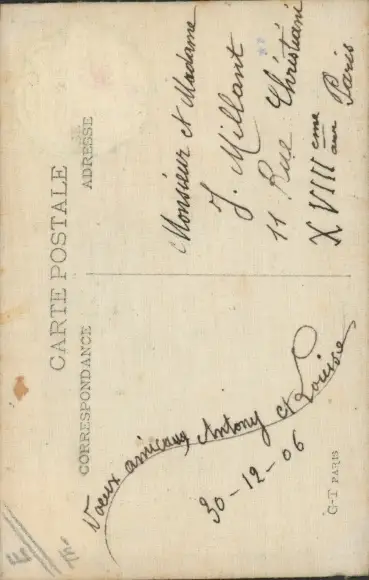 CARTE POSTALE
CORRESPONDANCE
ADRESSE
Voeux amicaux Antony et Louise
30-12-06
Monsieur et Madame
J. Millant
11 Rue Christiani
XVIII eme arr Paris
G-T PARIS